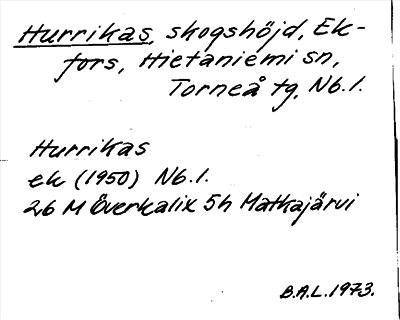 Hurrikas, skogshöjd, Ek-
fors, Hietaniemi sn,
Torneå tg, Nb.l.
Hurrikas
ek (1950) Nb.l.
26 M Överkalix 5h Matkajärvi
B.A.L.1973.